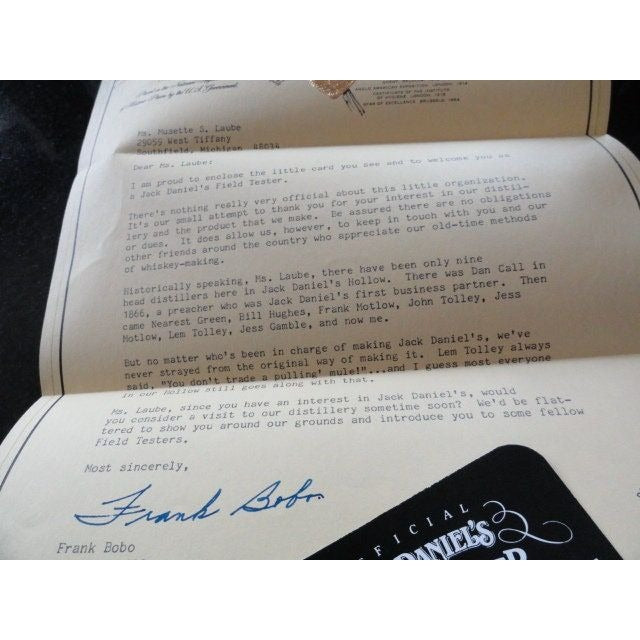 ANGLO AMERICAN EXPOSITION, LONDON, 1914
CERTIFICATE OF THE INSTITUTE
OF HYGIENE, LONDON, 1915
STAR OF EXCELLENCE, BRUSSELS, 1954
by the U.S. Government.
Ms. Musette S. Laube
29059 West Tiffany
Southfield, Michigan 48034
Dear Ms. Laube:
I am proud to enclose the little card you see and to welcome you as
a Jack Daniel's Field Tester.
There's nothing really very official about this little organization.
It's our small attempt to thank you for your interest in our distil-
lery and the product that we make. Be assured there are no obligations
or dues. It does allow us, however, to keep in touch with you and our
other friends around the country who appreciate our old-time methods
of whiskey-making.
Historically speaking, Ms. Laube, there have been only nine
head distillers here in Jack Daniel's Hollow. There was Dan Call in
1866, a preacher who was Jack Daniel's first business partner. Then
came Nearest Green, Bill Hughes, Frank Motlow, John Tolley, Jess
Motlow, Lem Tolley, Jess Gamble, and now me.
But no matter who's been in charge of making Jack Daniel's, we've
never strayed from the original way of making it. Lem Tolley always
said, "You don't trade a pulling' mule!"...and I guess most everyone
in our Hollow still goes along with that.
Ms. Laube, since you have an interest in Jack Daniel's, would
you consider a visit to our distillery sometime soon? We'd be flat-
tered to show you around our grounds and introduce you to some fellow
Field Testers.
Most sincerely,
Frank Bobo
Frank Bobo
OFFICIAL
DANIEL'S